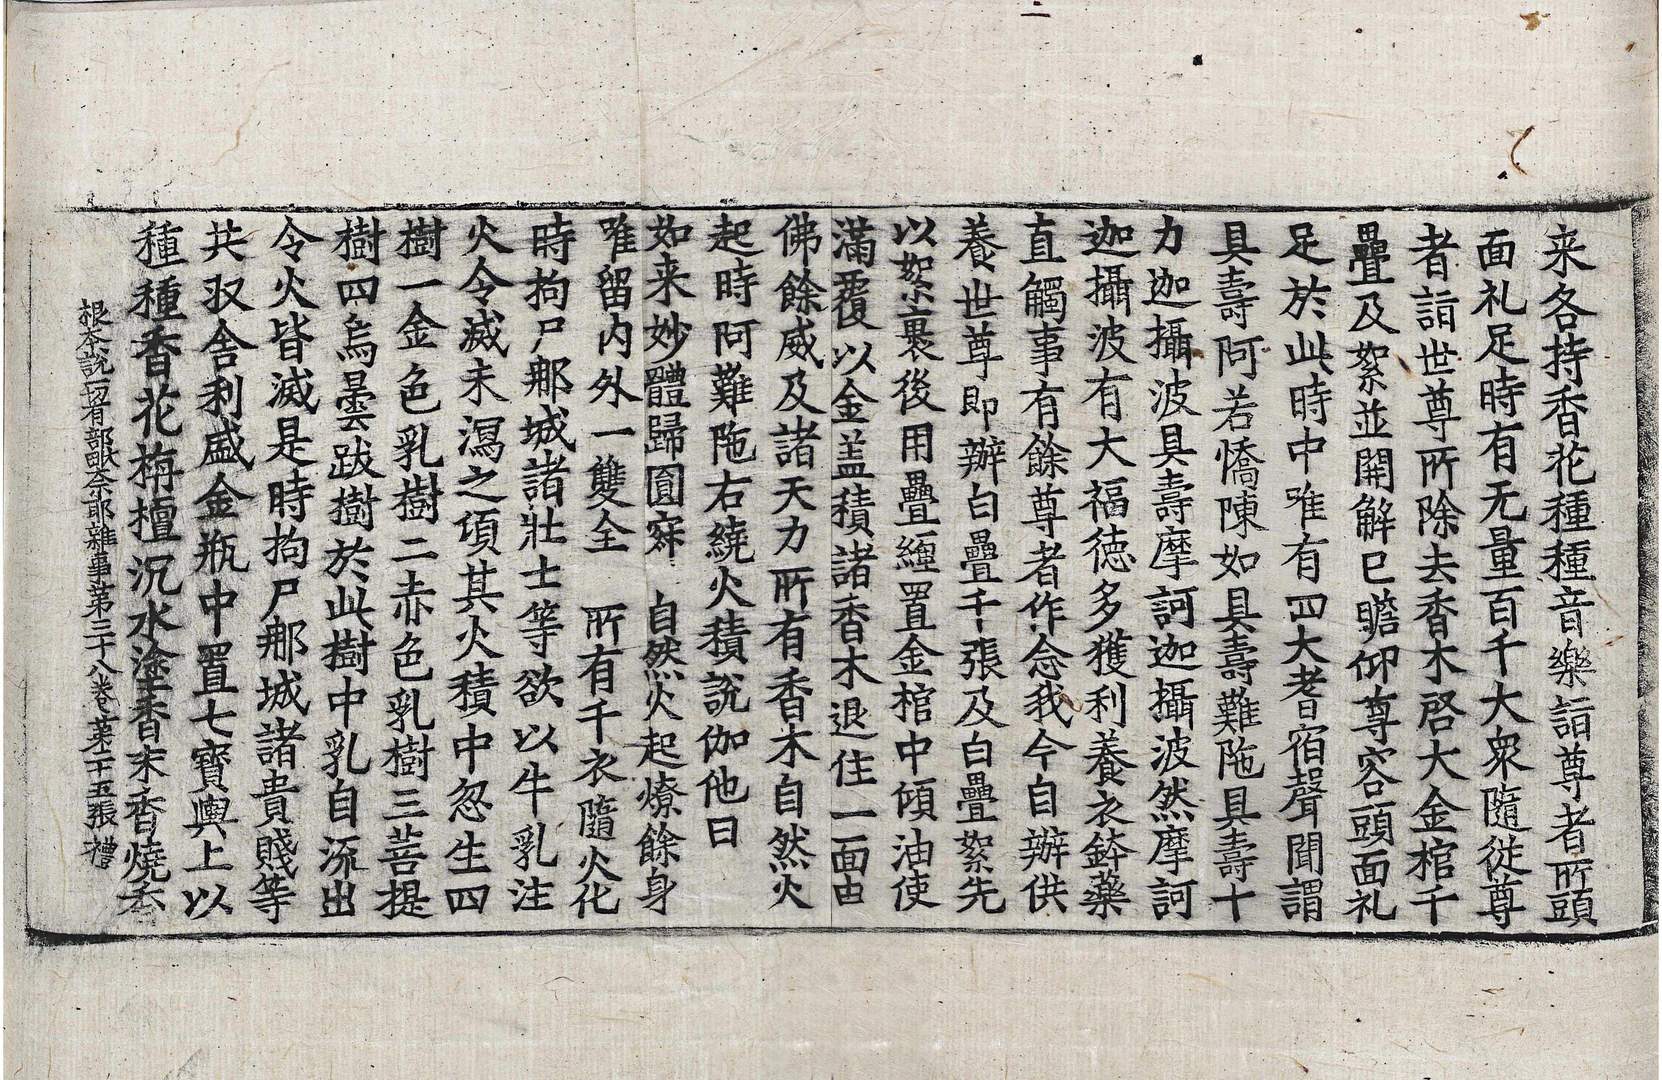 来各持香花種種音樂詣尊者所頭
面礼足時有无量百千大衆隨從尊
者詣世尊所除去香木啓大金棺千
疊及絮並開解已瞻仰尊容頭面礼
足於此時中唯有四大耆宿聲聞謂
具壽阿若憍陳如具壽難陁具壽十
力迦攝波具壽摩訶迦攝波然摩訶
迦攝波有大福徳多獲利養衣鉢藥
直觸事有餘尊者作念我今自辦供
養世尊即辦白疊千張及白疊絮先
以絮裹後用疊纏置金棺中傾油使
滿覆以金盖積諸香木退住一面由
佛餘威及諸天力所有香木自然火
起時阿難陁右繞火積說伽他曰
如来妙體歸圓寂 自然火起燎餘身
唯留内外一雙全 所有千衣隨火化
時拘尸那城諸壯士等欲以牛乳注
火令滅未瀉之頃其火積中忽生四
樹一金色乳樹二赤色乳樹三菩提
樹四烏曇跋樹於此樹中乳自流出
令火皆滅是時拘尸那城諸貴賤等
共収舎利盛金瓶中置七寶輿上以
種種香花栴檀沉水塗香末香燒香
根本說一切有部毗奈耶雜事第三十八卷 第二十五張 禮